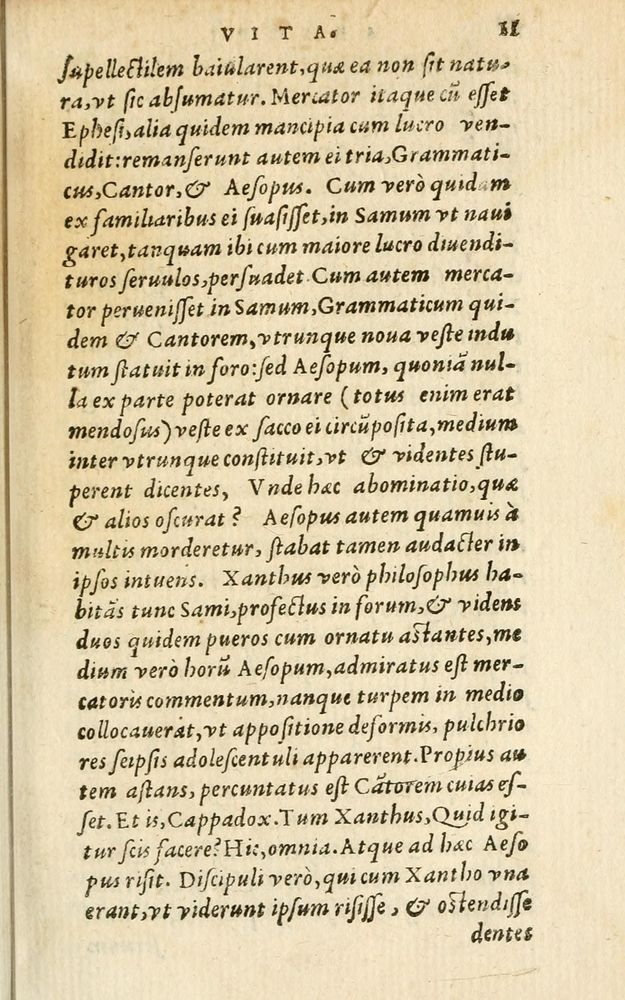 VITA. 11
ſupellectilem baiularent, quæ ea non ſit natu-
ra, vt ſic abſumatur. Mercator itaque cũ eſſet
Epheſi, alia quidem mancipia cum lucro ven-
didit: remanſerunt autem ei tria, Grammati-
cus, Cantor, & Aeſopus. Cum verò quidam
ex familiaribus ei ſuaſiſſet, in Samum vt naui
garet, tanquam ibi cum maiore lucro diuendi-
turos ſeruulos, perſuadet. Cum autem merca-
tor perueniſſet in Samum, Grammaticum qui-
dem & Cantorem, vtrunque noua veſte indu
tum ſtatuit in foro: ſed Aeſopum, quoniã nul-
la ex parte poterat ornare (totus enim erat
mendoſus) veſte ex ſacco ei circũpoſita, medium
inter vtrunque conſtituit, vt & videntes ſtu-
perent dicentes, Vnde hæc abominatio, quæ
& alios oſcurat? Aeſopus autem quamuis à
multis morderetur, ſtabat tamen audacter in
ipſos intuens. Xanthus verò philoſophus ha-
bitãs tunc Sami, profectus in forum, & videns
duos quidem pueros cum ornatu aſtantes, me
dium verò horũ Aeſopum, admiratus eſt mer-
catoris commentum, nanque turpem in medio
collocauerat, vt appoſitione deformis, pulchrio
res ſeipſis adoleſcentuli apparerent. Propius au
tem aſtans, percuntatus eſt Cãtorem cuias eſ-
ſet. Et is, Cappadox. Tum Xanthus, Quid igi-
tur ſcis facere? Hic, omnia. Atque ad hæc Aeſo
pus riſit. Diſcipuli verò, qui cum Xantho vna
erant, vt viderunt ipſum riſiſſe, & oſtendiſſe
dentes